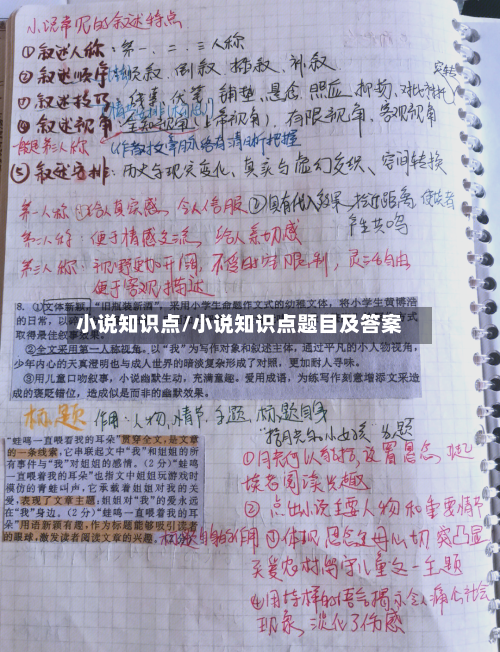 小说常见的叙述特点
①叙述人称:第一、二、三人称
②叙述顺序 顺叙、倒叙、插叙、补叙
③叙述技巧 线索、伏笔、铺垫、悬念、照应、抑扬、对比衬托
突转
④叙述视角 全知视角(上帝视角)、有限视角、客观视角
一般是第三人称 (作者对文章脉络有清晰把握
⑤叙述安排:历史与现实变化、真实与虚幻交织、空间转换
第一人称:①给人真实感,令人信服②具有代入效果,拉近距离,使读者
产生共鸣
第二人称:便于情感交流,给人亲切感
第三人称:视野更加开阔,不受时空限制,灵活自由
便于客观描述
8.①文体新颖,“旧瓶装新酒”,采用小学生命题作文式的幼稚文体,将小学生黄博浩
的日常,以
小说知识点/小说知识点题目及答案
取得最佳叙事效果。
②全文采用第一人称视角,以“我”为写作对象和叙述主体,通过平凡的小人物视角,
少年内心的天真澄明也与成人世界的暗淡复杂形成了对照,更加耐人寻味。
③用儿童口吻叙事,小说幽默生动,充满童趣。爱用成语,为练写作刻意增添文采造
成的褒贬错位,造成似是而非的幽默效果。
标题 作用:人物、情节、主题、标题自身
“蛙鸣一直暖着我的耳朵”贯穿全文,是文章
的一条线索,它串联起文中“我”和姐姐的所
有事件与“我”对姐姐的感情。(2分)“蛙鸣
一直暖着我的耳朵”也指文中姐姐玩游戏时
模仿的青蛙叫声,它承载着姐姐对我的关
爱,表现了文章主题:姐姐对“我”的爱永远
在“我”身边。(2分)“蛙鸣一直暖着我的耳
朵”用语新颖有趣,作为标题能够吸引读者
的眼球,激发读者阅读文章的兴趣。
标题自身的作用
为题
①用疑问 设置悬念,引起
读者阅读兴趣
②点出小说主要人物和重要情节
③体现 思念母心切 突凸显
关爱农村留守儿童这一主题
④用 的语气揭示令人痛心社会
现象,淡化了伤感